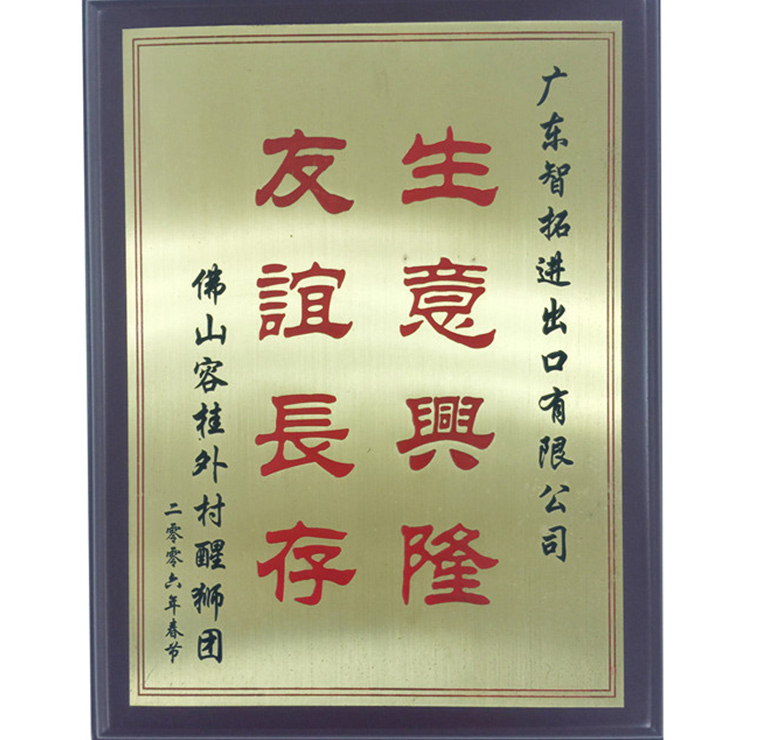 广东智拓进出口有限公司
生意興隆
友誼長存
佛山容桂外村醒狮团
二零零六年春节